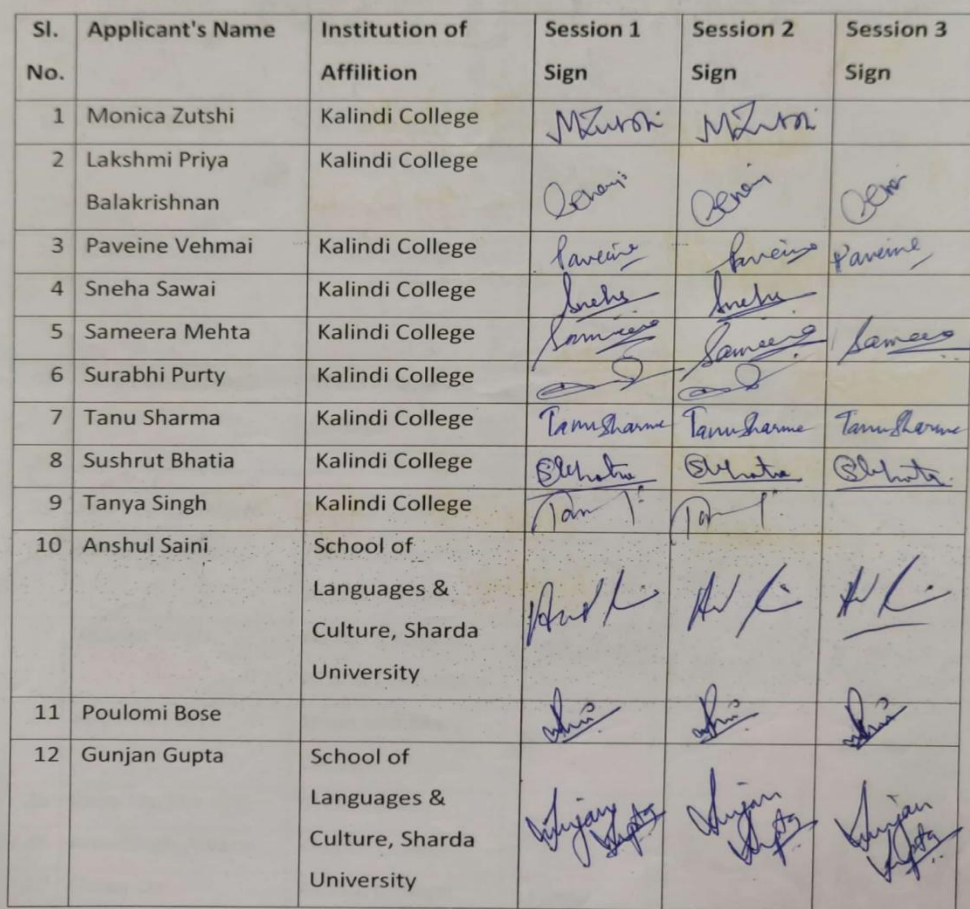 Sl. No. Applicant's Name Institution of Affilition Session 1 Sign Session 2 Sign Session 3 Sign
1 Monica Zutshi Kalindi College MZutshi MZutshi
2 Lakshmi Priya Balakrishnan Kalindi College
3 Paveine Vehmai Kalindi College Paveine Paveine Paveine
4 Sneha Sawai Kalindi College Sneha Sneha
5 Sameera Mehta Kalindi College Sameera Sameera Sameera
6 Surabhi Purty Kalindi College
7 Tanu Sharma Kalindi College Tanu Sharma Tanu Sharma Tanu Sharma
8 Sushrut Bhatia Kalindi College
9 Tanya Singh Kalindi College
10 Anshul Saini School of Languages & Culture, Sharda University
11 Poulomi Bose
12 Gunjan Gupta School of Languages & Culture, Sharda University Gunjan Gupta Gunjan Gupta Gunjan Gupta